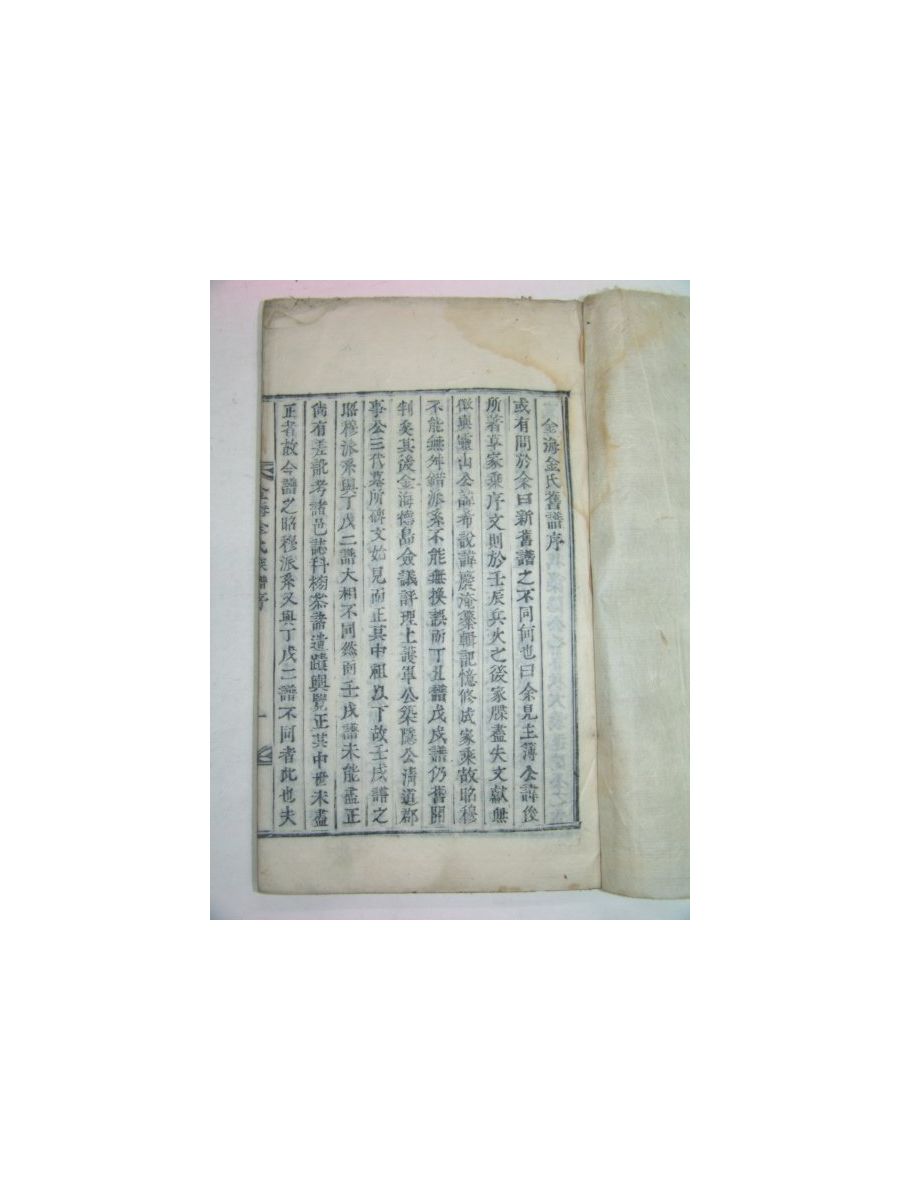 金海金氏舊譜序
或有問於余曰新舊譜之不同何也曰余見主簿公諱後
所著享家乘序文則於壬辰兵火之後家牒盡失文獻無
徵與靈山公諱希說諱慶淹纂輯記憶修成家乘故昭穆
不能無舛錯派系不能無換誤而丁丑譜戊戌譜仍舊開
判矣其後金海德島僉議評理上護軍公築隱公淸道郡
事公三代墓所碑文始見而正其中祖以下故壬戌譜之
昭穆派系與丁戊二譜大相不同然而壬戌譜未能盡正
尙有差訛考諸邑誌科榜叅諸遺蹟輿覽正其中世未盡
正者故今譜之昭穆派系又與丁戊二譜不同者此也夫
金海金氏族譜序
一